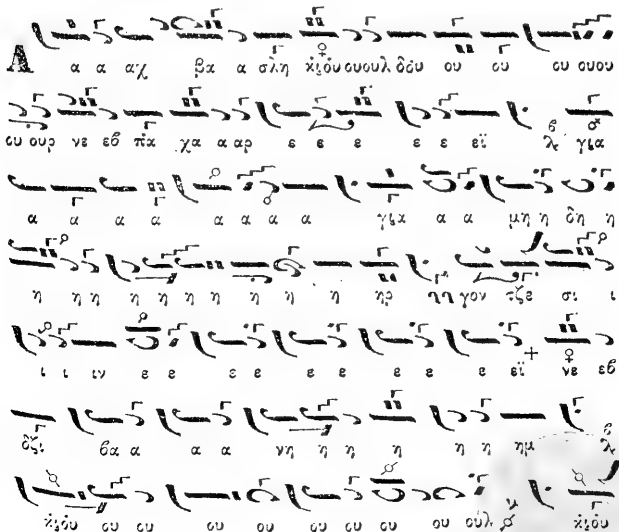 Α α α αχ βα α σλη κιὸυ ουουλ δὸυ ου ου ου ουου
ου ουρ νε εβ πὰκ χα α αρ ε ε ε ε ε εϊ για
α α α α α α α α για α α μη η δη η
η η η η η η η η η η ηρ γον τζε σι ι
ι ι ιν ε ε ε ε ε ε ε ε εϊ νε εβ
ὸζι βα α α α νη η η η η η ημ
κιὸυ ου ου ου ου ου ου ου ου ουλ κιὸυ